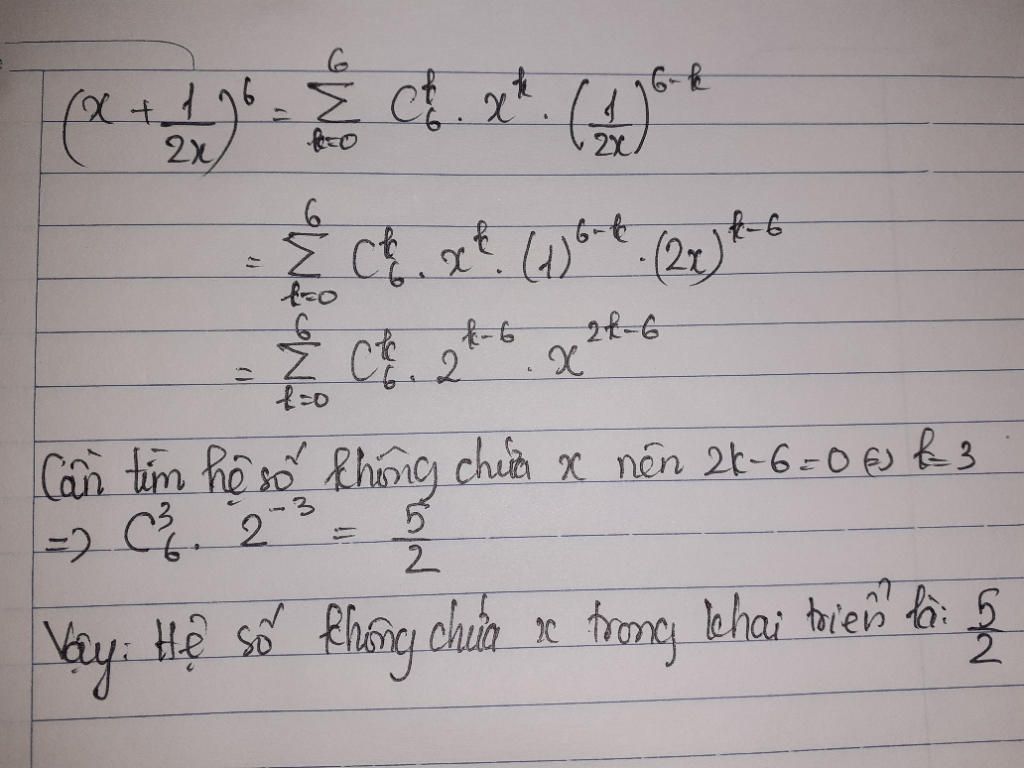 (x + 1/2x)^6 = ∑_{k=0}^{6} C_6^k . x^k . (1/2x)^{6-k}
= ∑_{k=0}^{6} C_6^k . x^k . (1)^{6-k} . (2x)^{k-6}
= ∑_{k=0}^{6} C_6^k . 2^{k-6} . x^{2k-6}
Cần tìm hệ số không chứa x nên 2k-6=0 ⇔ k=3
=> C_6^3 . 2^{-3} = 5/2
Vậy: Hệ số không chứa x trong khai triển là: 5/2